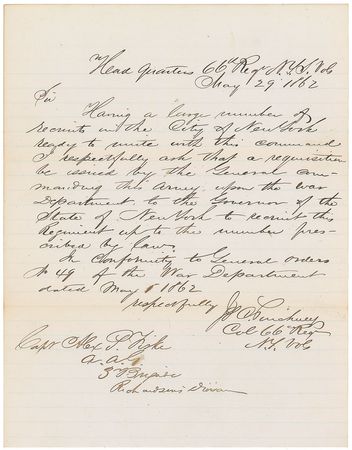 Head Quarters 66th Regt N.Y.S. Vols
May 29 1862
Sir
Having a large number of
recruits in the City of New York
ready to unite with this command
I respectfully ask that a requisition
be issued by the General com-
manding this Army upon the War
Department to the Governor of the
State of New York to recruit this
Regiment up to the number pres-
cribed by law.
In conformity to General orders
No 49 of the War Department
dated May 1862
respectfully
J. C. Pinckney
Col 66th Regt
N.Y. Vols
Capt Alex P.
A. A. G.
3d Brigade
Richardson's Division